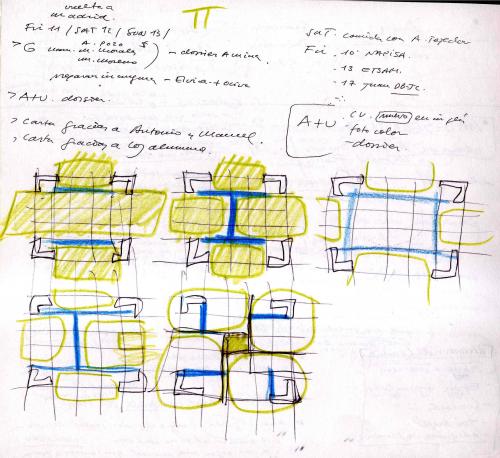 vuelta a
madrid.
Fri 11 / SAT 12 / SUN 13 /
> G
A. POZO $
m. morales
m. moreno
- dossier A mina.
preparar inaugura -
> A+U. dossier.
> Carta gracias a Antonio y Manuel.
> Carta gracias a los alumnos.
SAT. comida con A. Tejedor
Fri . 10
- 13 ETSAM.
- 17
A+U
· CV. nuevo en inglés
· foto color
- dossier.